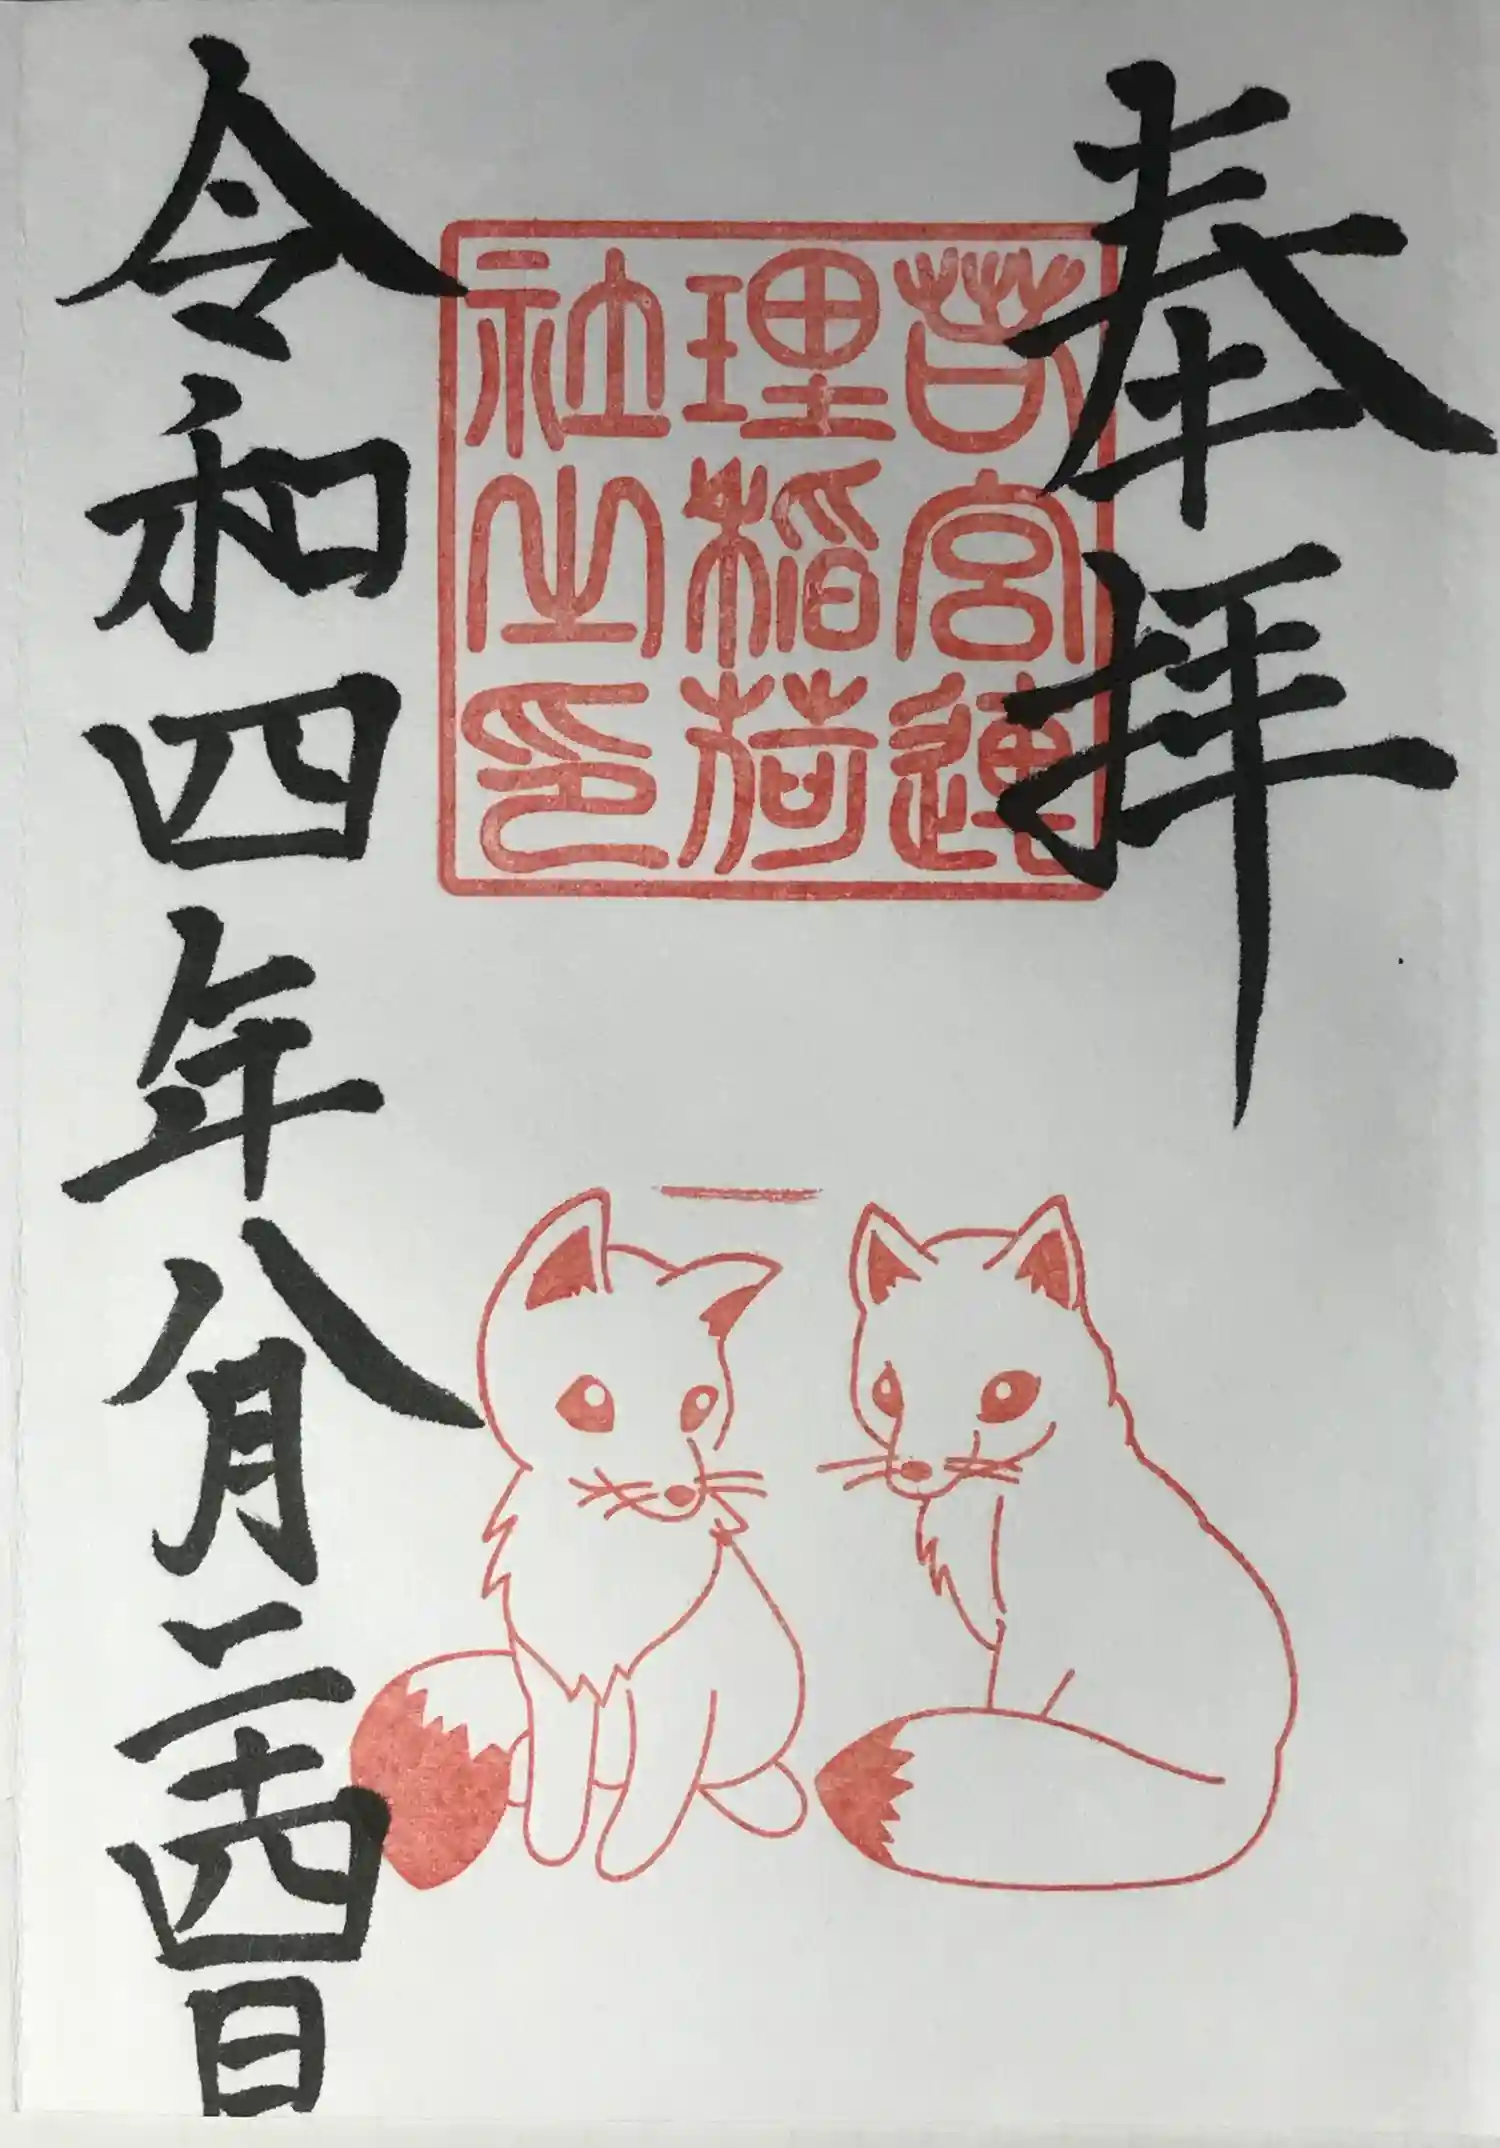 奉拝
若宮運
理稲荷
社之印
令和四年八月二十四日